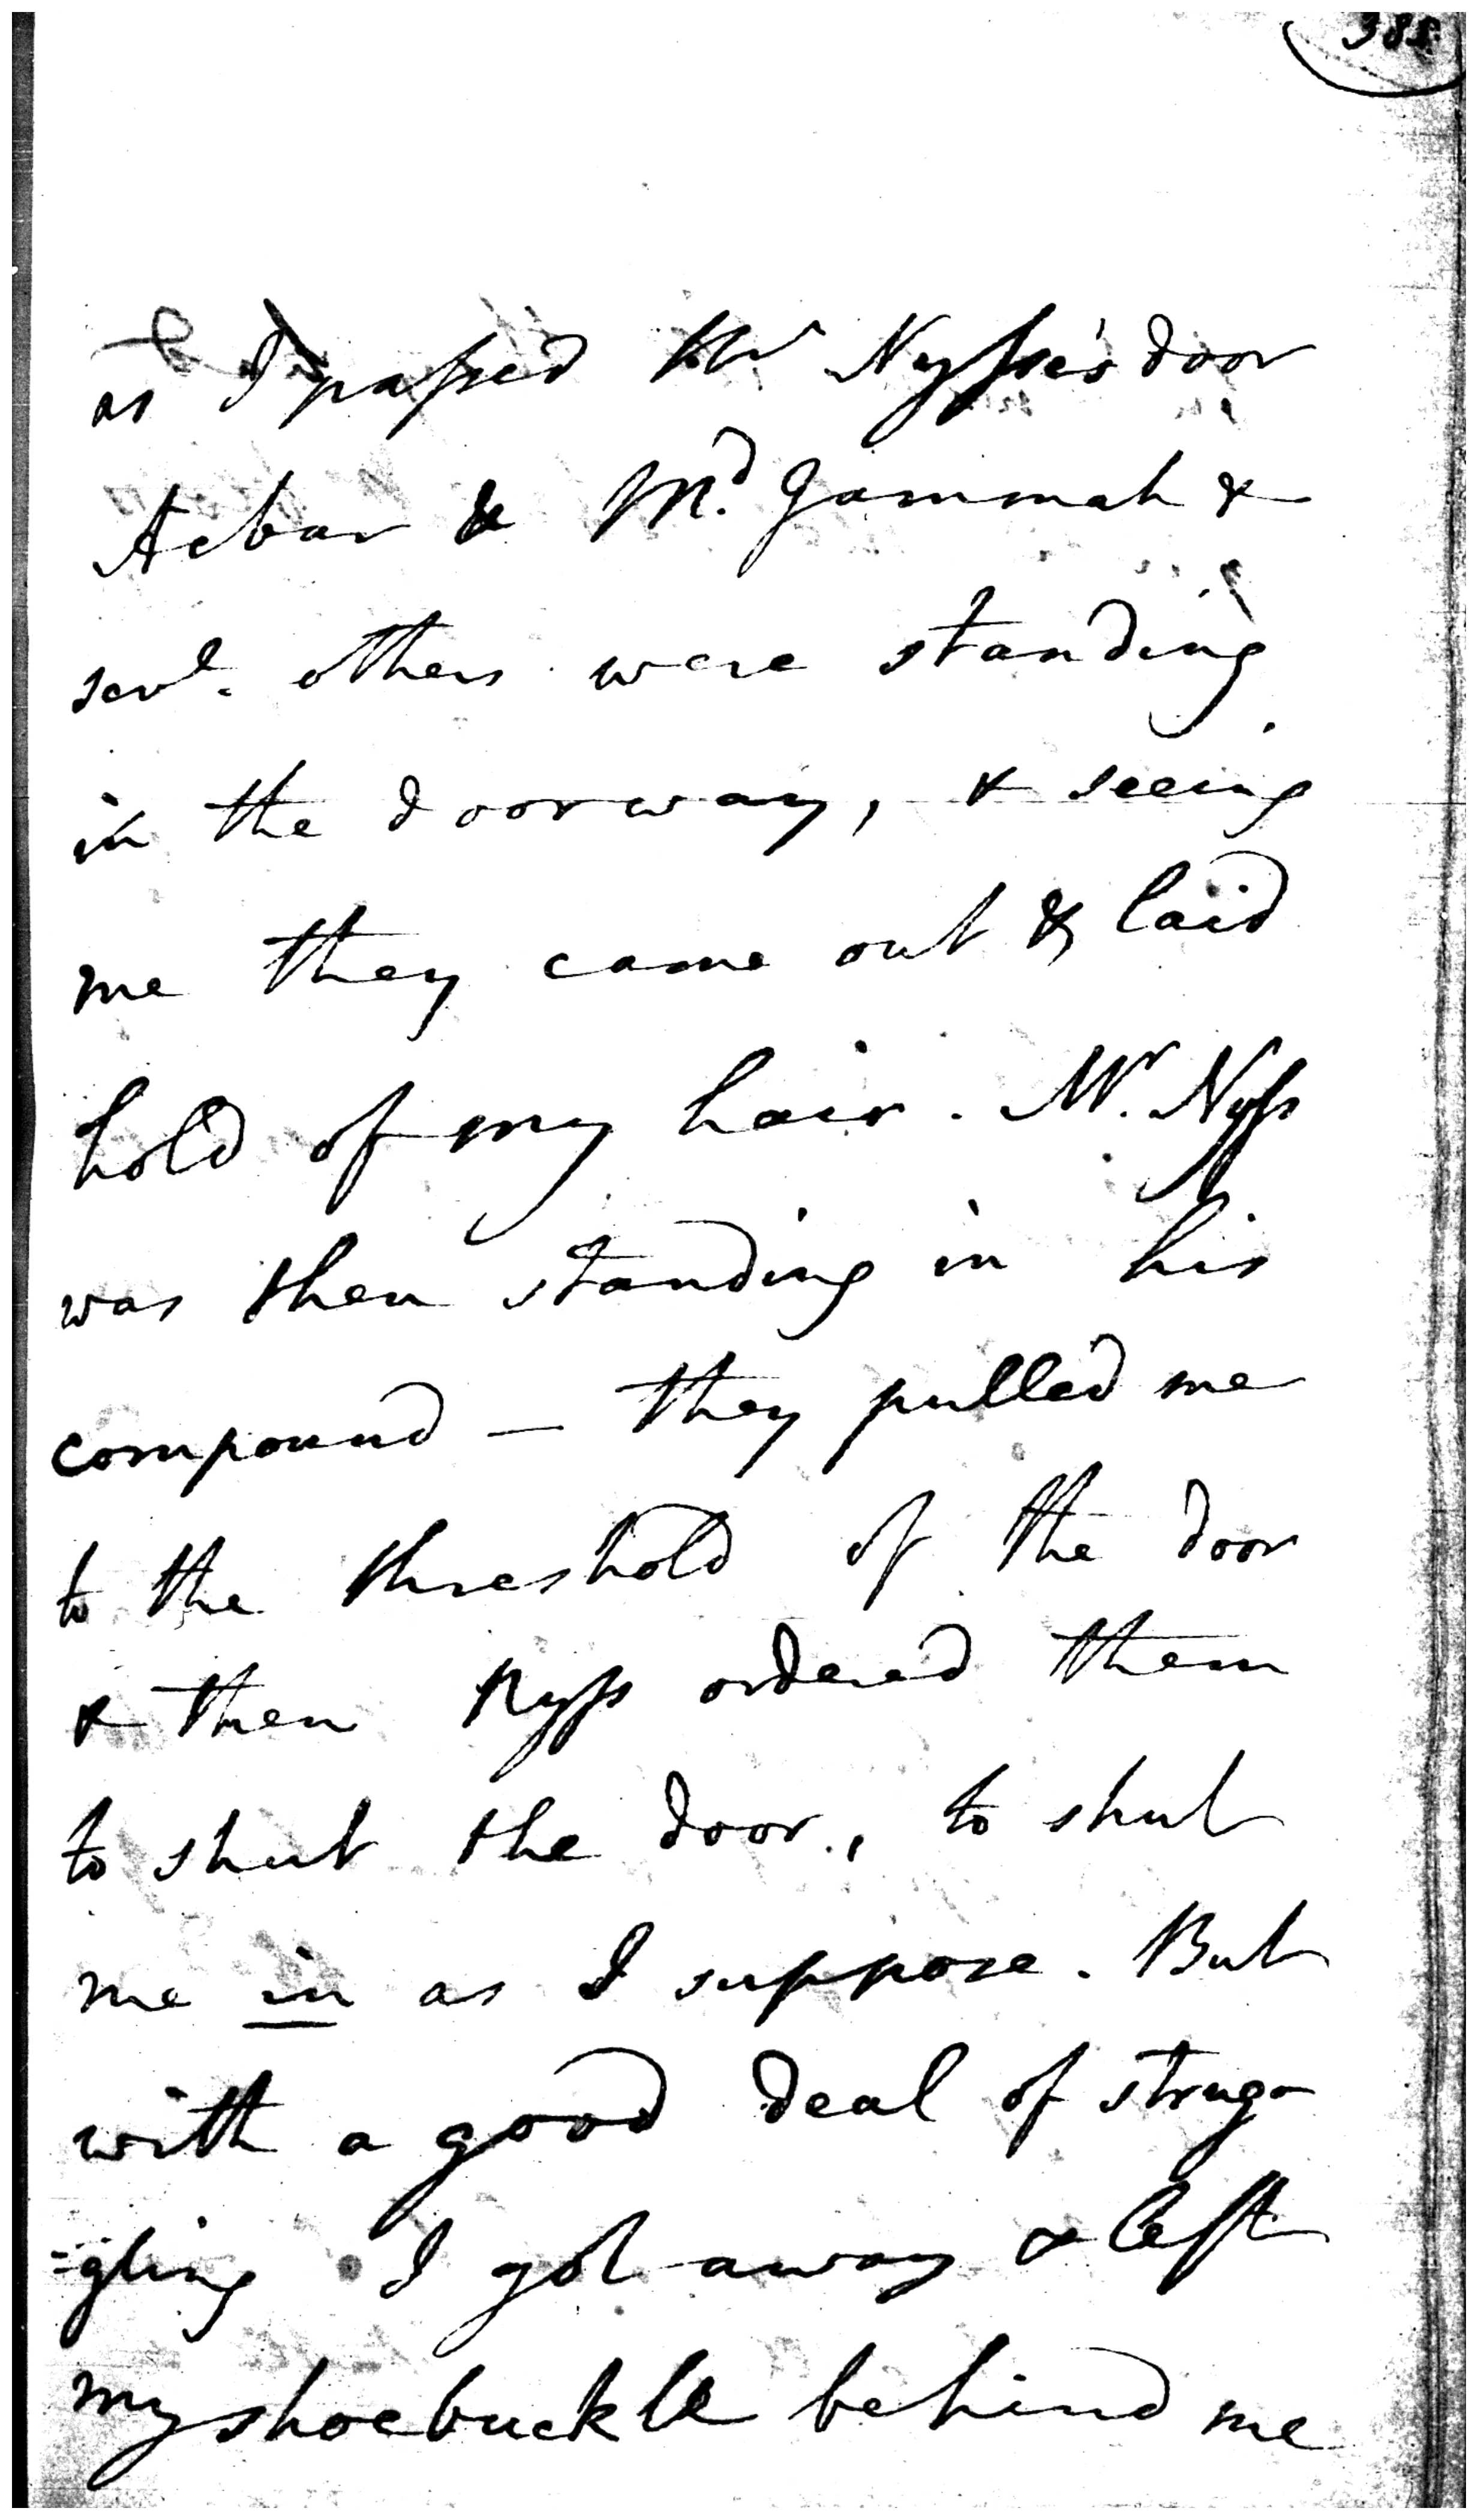 385
as I passed Mr Nysse's door
Acbar & Md. Jammah &
sevl. others were standing
in the doorway, & seeing
me they came out & laid
hold of my hair. Mr. Nyss
was then standing in his
compound — they pulled me
to the threshold of the door
& then Nyss ordered them
to shut the door, to shut
me in as I suppose. But
with a good deal of strug-
-gling I got away & left
my shoebuckle behind me